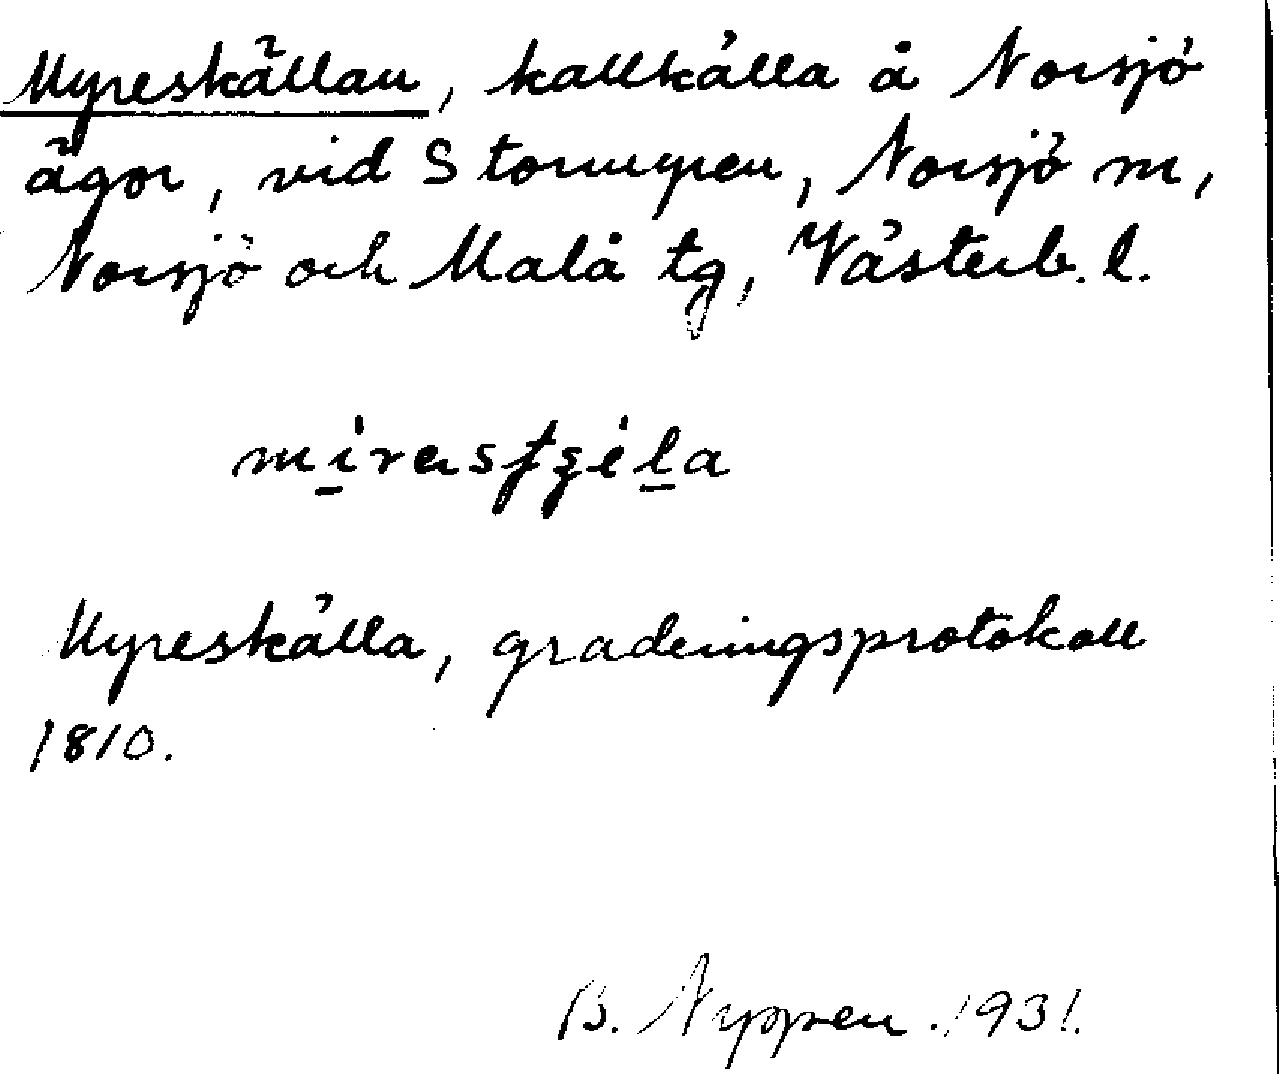 Myreskällan, kallkälla å Norsjö
ägor, vid Stormyren, Norsjö sn,
Norsjö och Malå tg, Västerb. l.
Myreskälla, graderingsprotokoll
1810.
B. Nyppen. 1931.